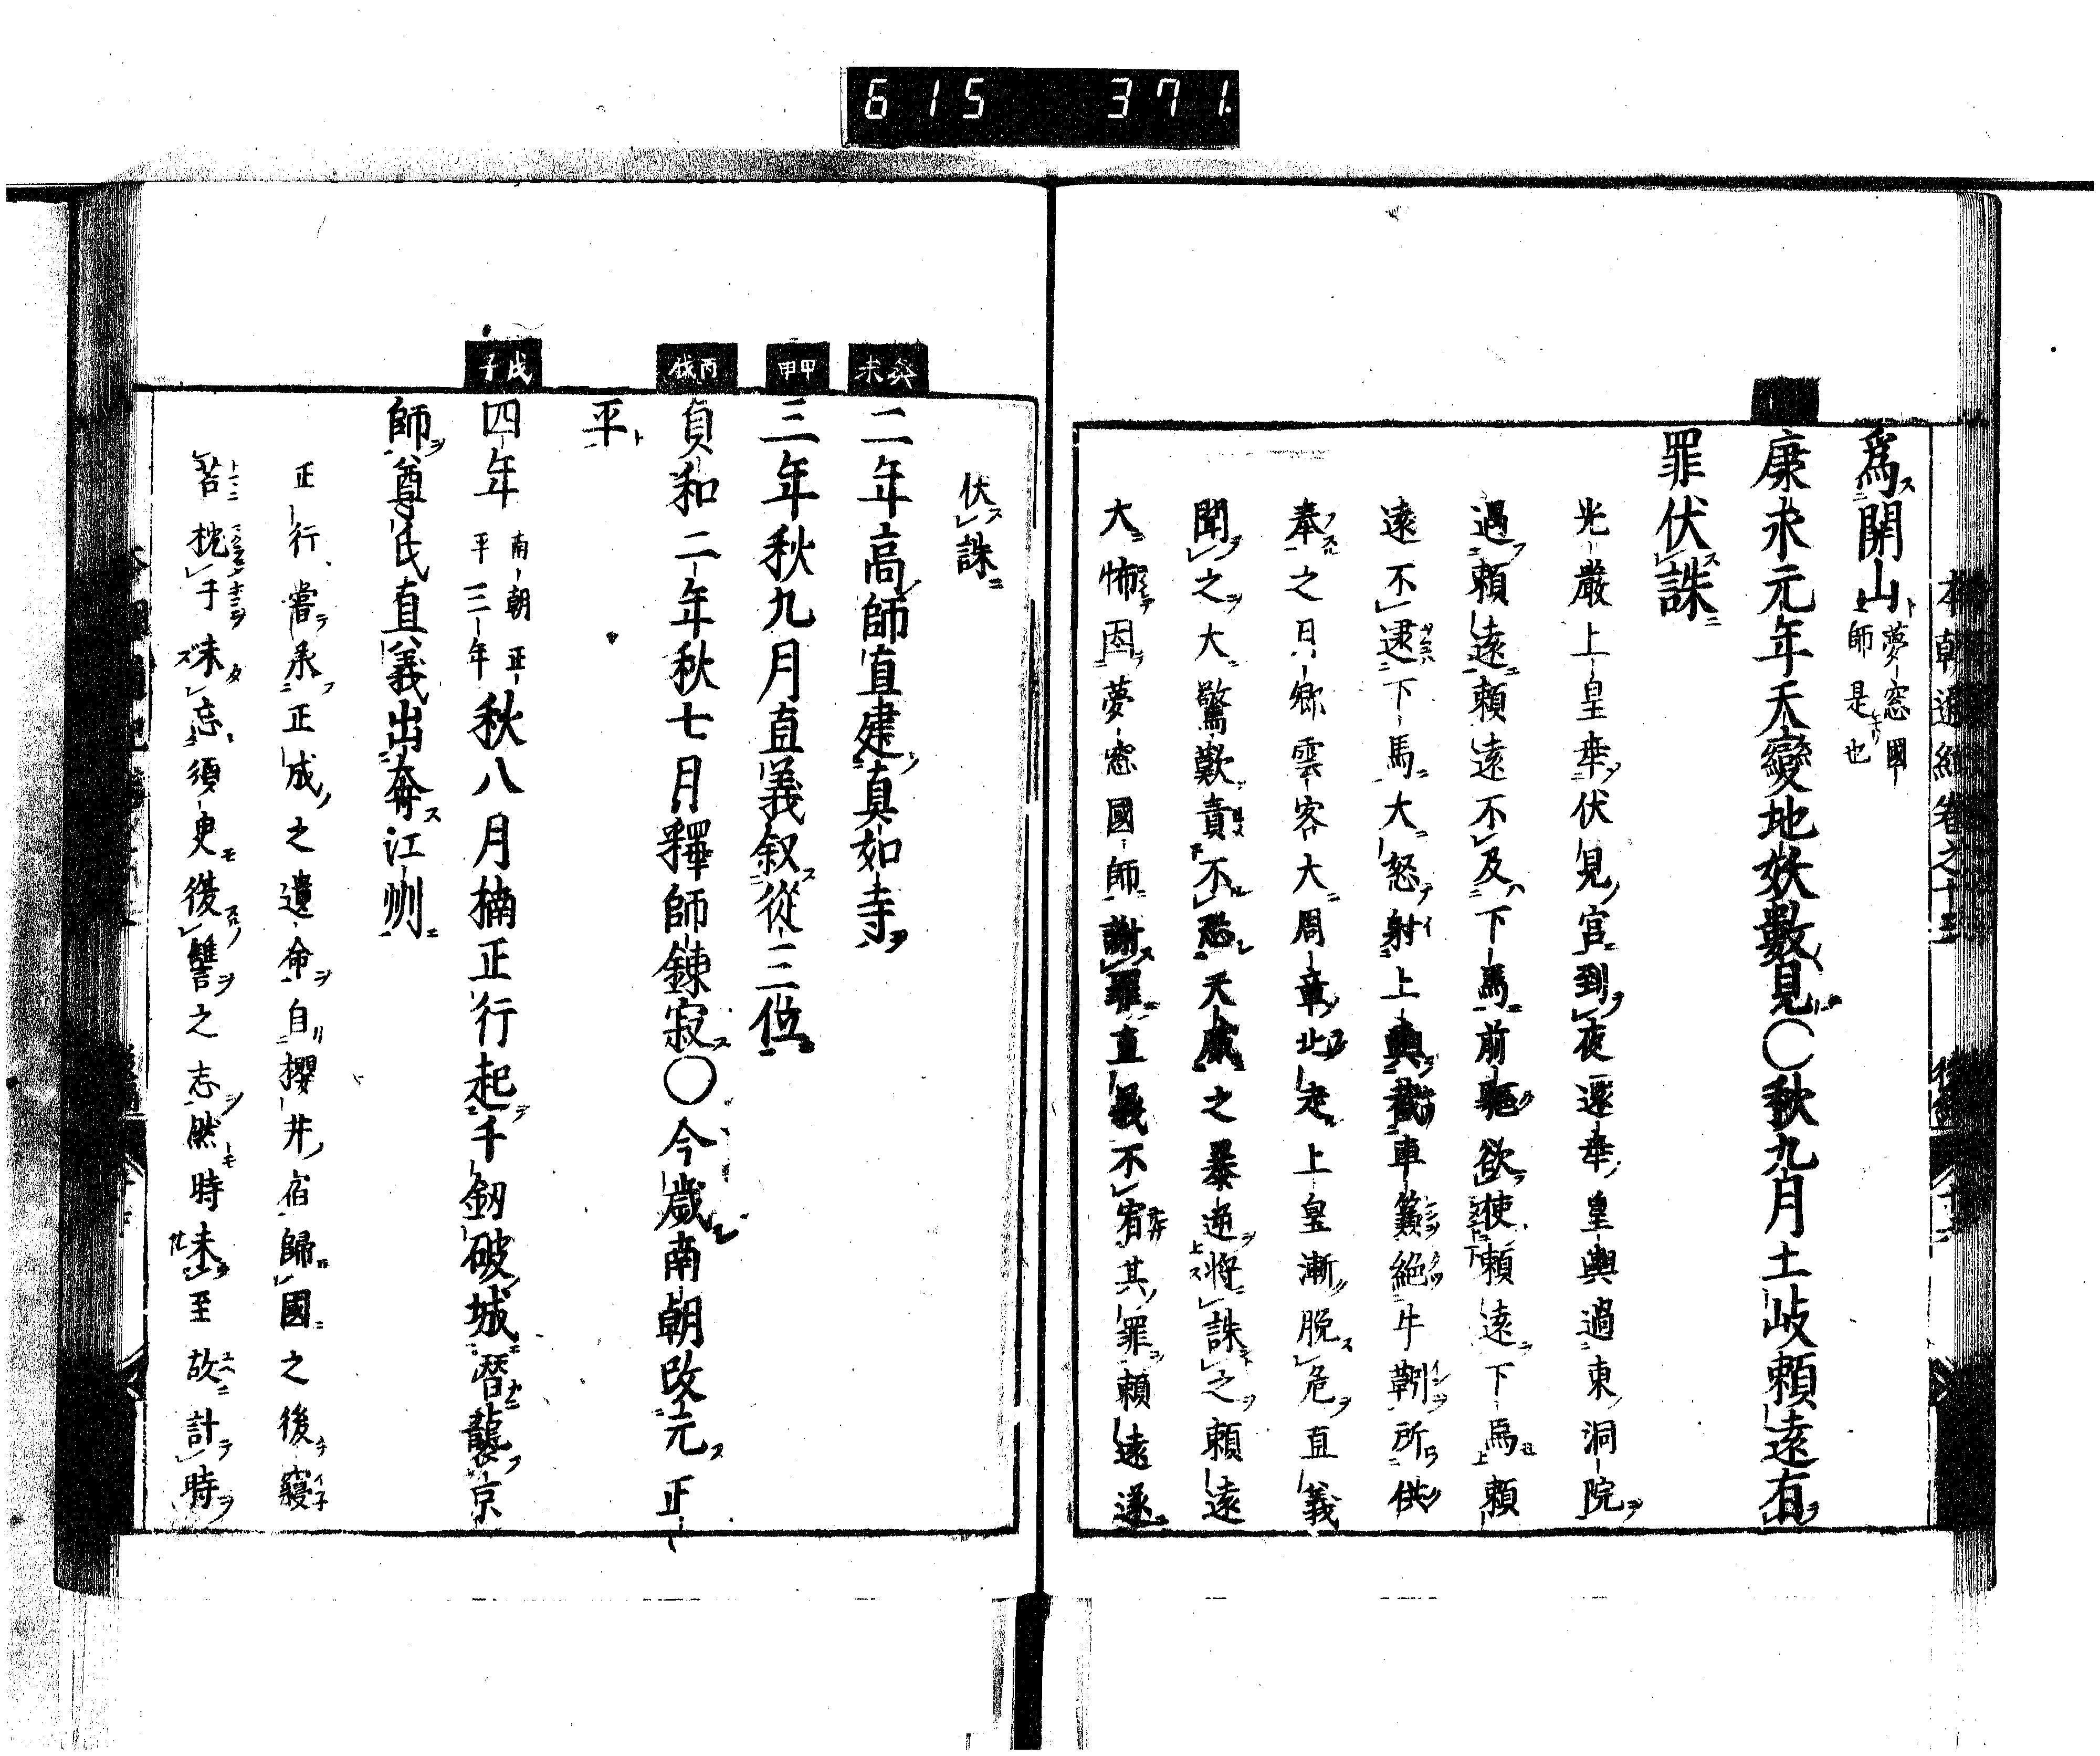 615 371
本朝通紀卷之十五
爲開山夢窓國師是也
康永元年天變地妖數見〇秋九月土岐頼遠有
罪伏誅
光嚴上皇幸伏見宮到夜還幸皇輿過東洞院
遇頼遠頼遠不及下馬前驅欲使頼遠下馬頼
遠不逮下馬大怒射上輿截車簾絕牛靷所供
奉之月卿雲客大周章北走上皇漸脱危直義
聞之大驚歎責不恐天威之暴逆將誅之頼遠
大怖因夢窓國師謝罪直義不宥其罪頼遠遂
伏誅
癸未
二年高師直建真如寺
甲申
三年秋九月直義叙從三位
丙戌
貞和二年秋七月釋師錬寂〇今歳南朝改元正
平
戊子
四年南朝正平三年秋八月楠正行起千釼破城潜襲京
師尊氏直義出奔江州
正行嘗承正成之遺命自櫻井宿歸國之後寢
苫枕于未忘須臾復讐之志然時未至故計時